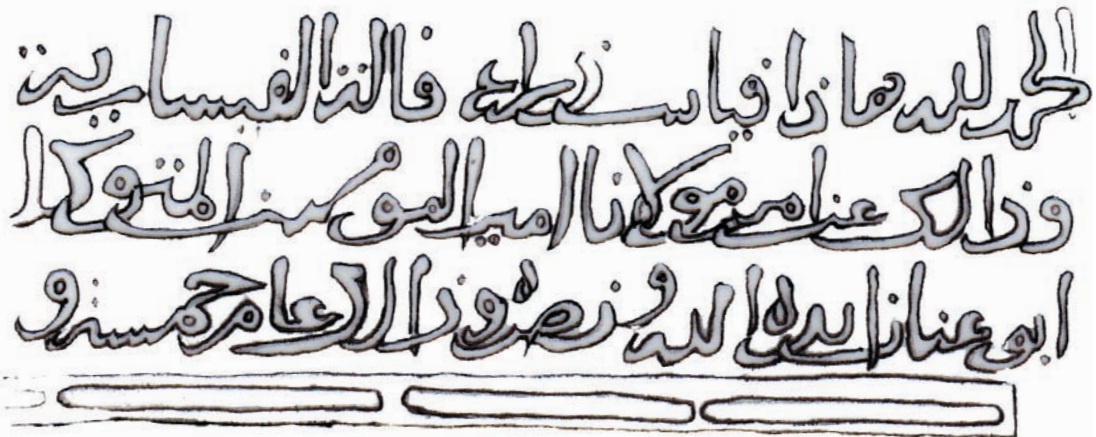 الحمد لله هاذا قياس ذراع قالة القيسارية
وذالك عن امر مولانا امير المومنين المتوكل
ابو عنان ايده الله ونصره وذالك عام خمسة و